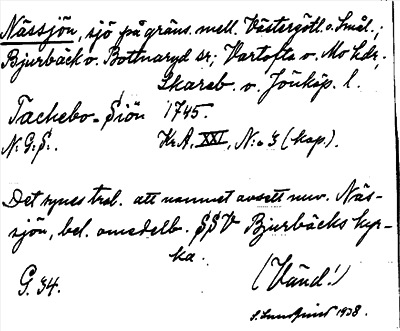 Nässjön, sjö på gräns. mell. Västergötl. o. Smål.;
Bjurbäck o. Bottnaryd sr; Vartofta o. Mo hdr,
Skarab. o. Jönköp. l.
Tachebo-Siön 1745.
N:G:S:. Kr.A. XXI, N:o 3 (kap).
Det synes trol. att namnet avsett nuv. Näs-
sjön, bel. omedelb. SSV Bjurbäcks kyr-
ka.
G. 34. (Vänd!)
S. Lundqvist 1938.